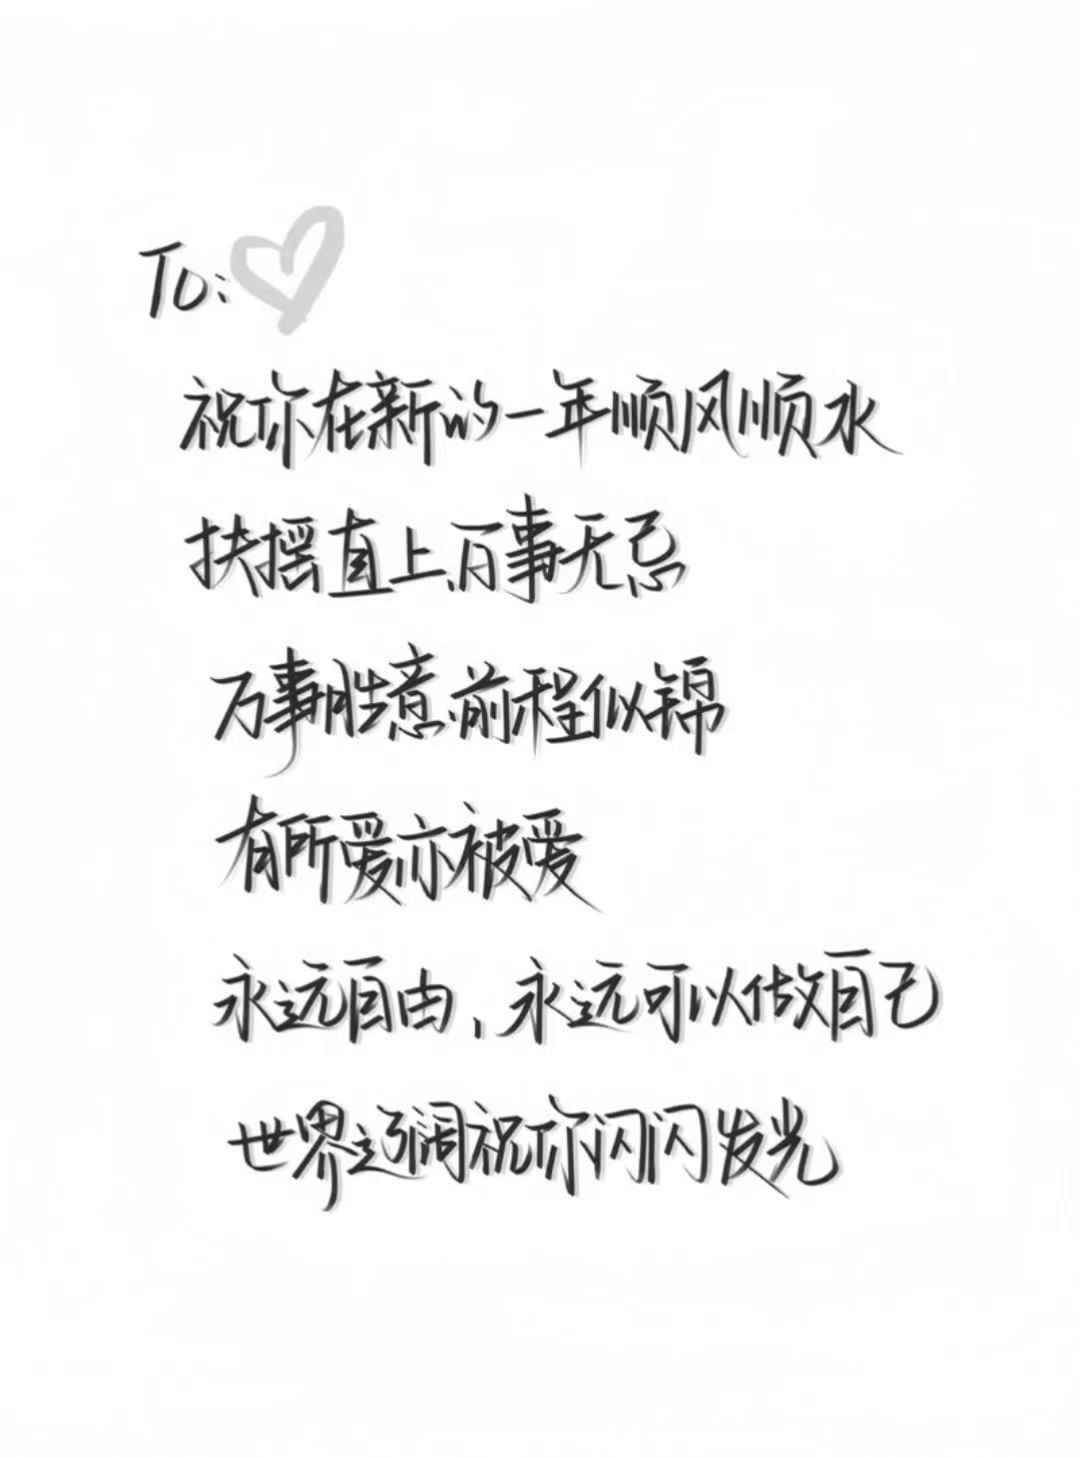 To:
祝你在新的一年顺风顺水
扶摇直上百事无忌
万事胜意前程似锦
有所爱亦被爱
永远自由、永远可以做自己
世界辽阔祝你闪闪发光